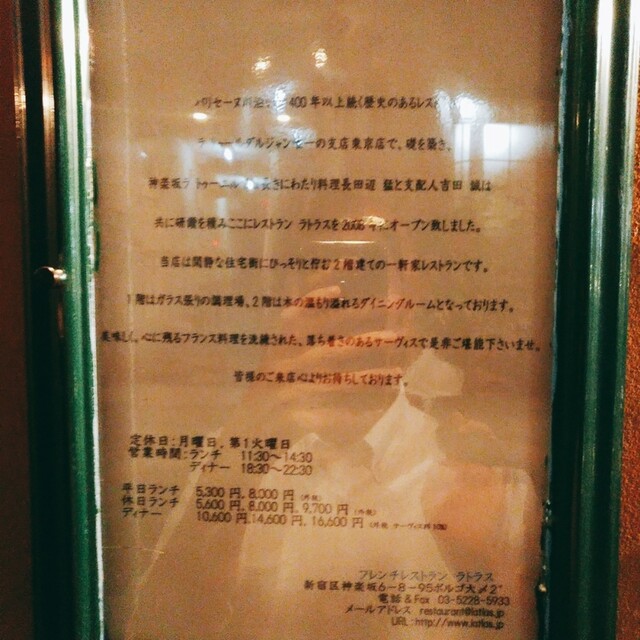 パリセーヌ川 400年以上続く歴史のあるレスト
ダルジャン の支店東京店で、礎を築き、
神楽坂 長きにわたり料理長田辺 猛と支配人吉田 誠は
共に研鑽を積みここにレストラン ラトラスを オープン致しました。
当店は閑静な住宅街にひっそりと佇む2階建ての一軒家レストランです。
1階はガラス張りの調理場、2階は木の温もり溢れるダイニングルームとなっております。
美味しく、心に残るフランス料理を洗練された、落ち着きのあるサーヴィスで是非ご堪能下さいませ。
皆様のご来店心よりお待ちしております。
定休日:月曜日、第1火曜日
営業時間:ランチ 11:30～14:30
ディナー 18:30～22:30
平日ランチ 5,300円、8,000円 (外税)
休日ランチ 5,600円、8,000円、9,700円 (外税)
ディナー 10,600円、14,600円、16,600円 (外税 サーヴィス料10%)
フレンチレストラン ラトラス
新宿区神楽坂6-8-95ボルゴ大〆2
電話&Fax 03-5228-5933
メールアドレス restaurant@latlas.jp
URL:http://www.latlas.jp